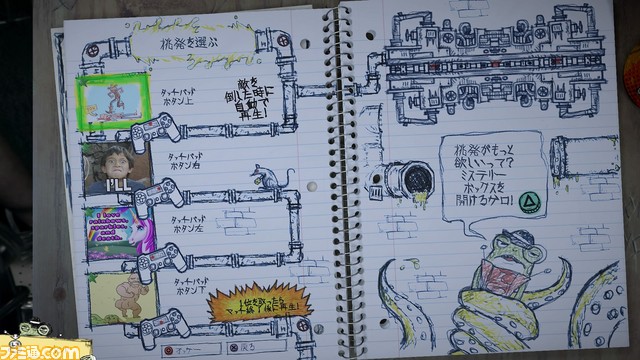 挑発を選ぶ
タッチパッド
ボタン上
敵を
倒した時に
自動で
再生!
タッチパッド
ボタン右
I'LL
タッチパッド
ボタン左
I love
rainbows,
sparkles,
and
death.
タッチパッド
ボタン下
1位を取ったら
マッチ終了後に再生!
戻る
挑発がもっと
欲しいって?
ミステリー
ボックスを
開けるゲロ!
ファミ通.com